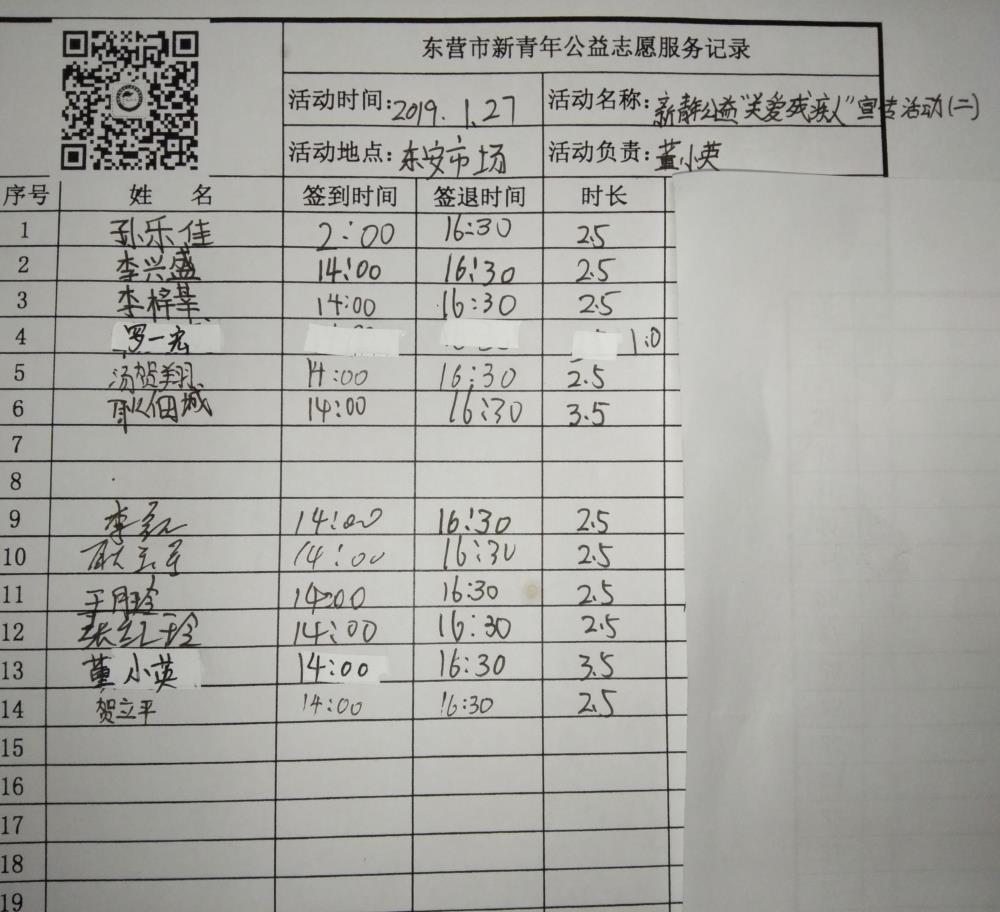 东营市新青年公益志愿服务记录
活动时间:2019.1.27 活动名称:新青年公益"关爱残疾人"宣传活动(二)
活动地点:东安市场 活动负责:董小英
序号 姓 名 签到时间 签退时间 时长
1 孙乐佳 2:00 16:30 2.5
2 李兴盛 14:00 16:30 2.5
3 李梓莘 14:00 16:30 2.5
4 罗一宏 1:0
5 汤贺翔 14:00 16:30 2.5
6 耿佃城 14:00 16:30 3.5
7
8
9 李 14:00 16:30 2.5
10 14:00 16:30 2.5
11 于月玲 14:00 16:30 2.5
12 张红玲 14:00 16:30 2.5
13 董小英 14:00 16:30 3.5
14 贺立平 14:00 16:30 2.5
15
16
17
18
19